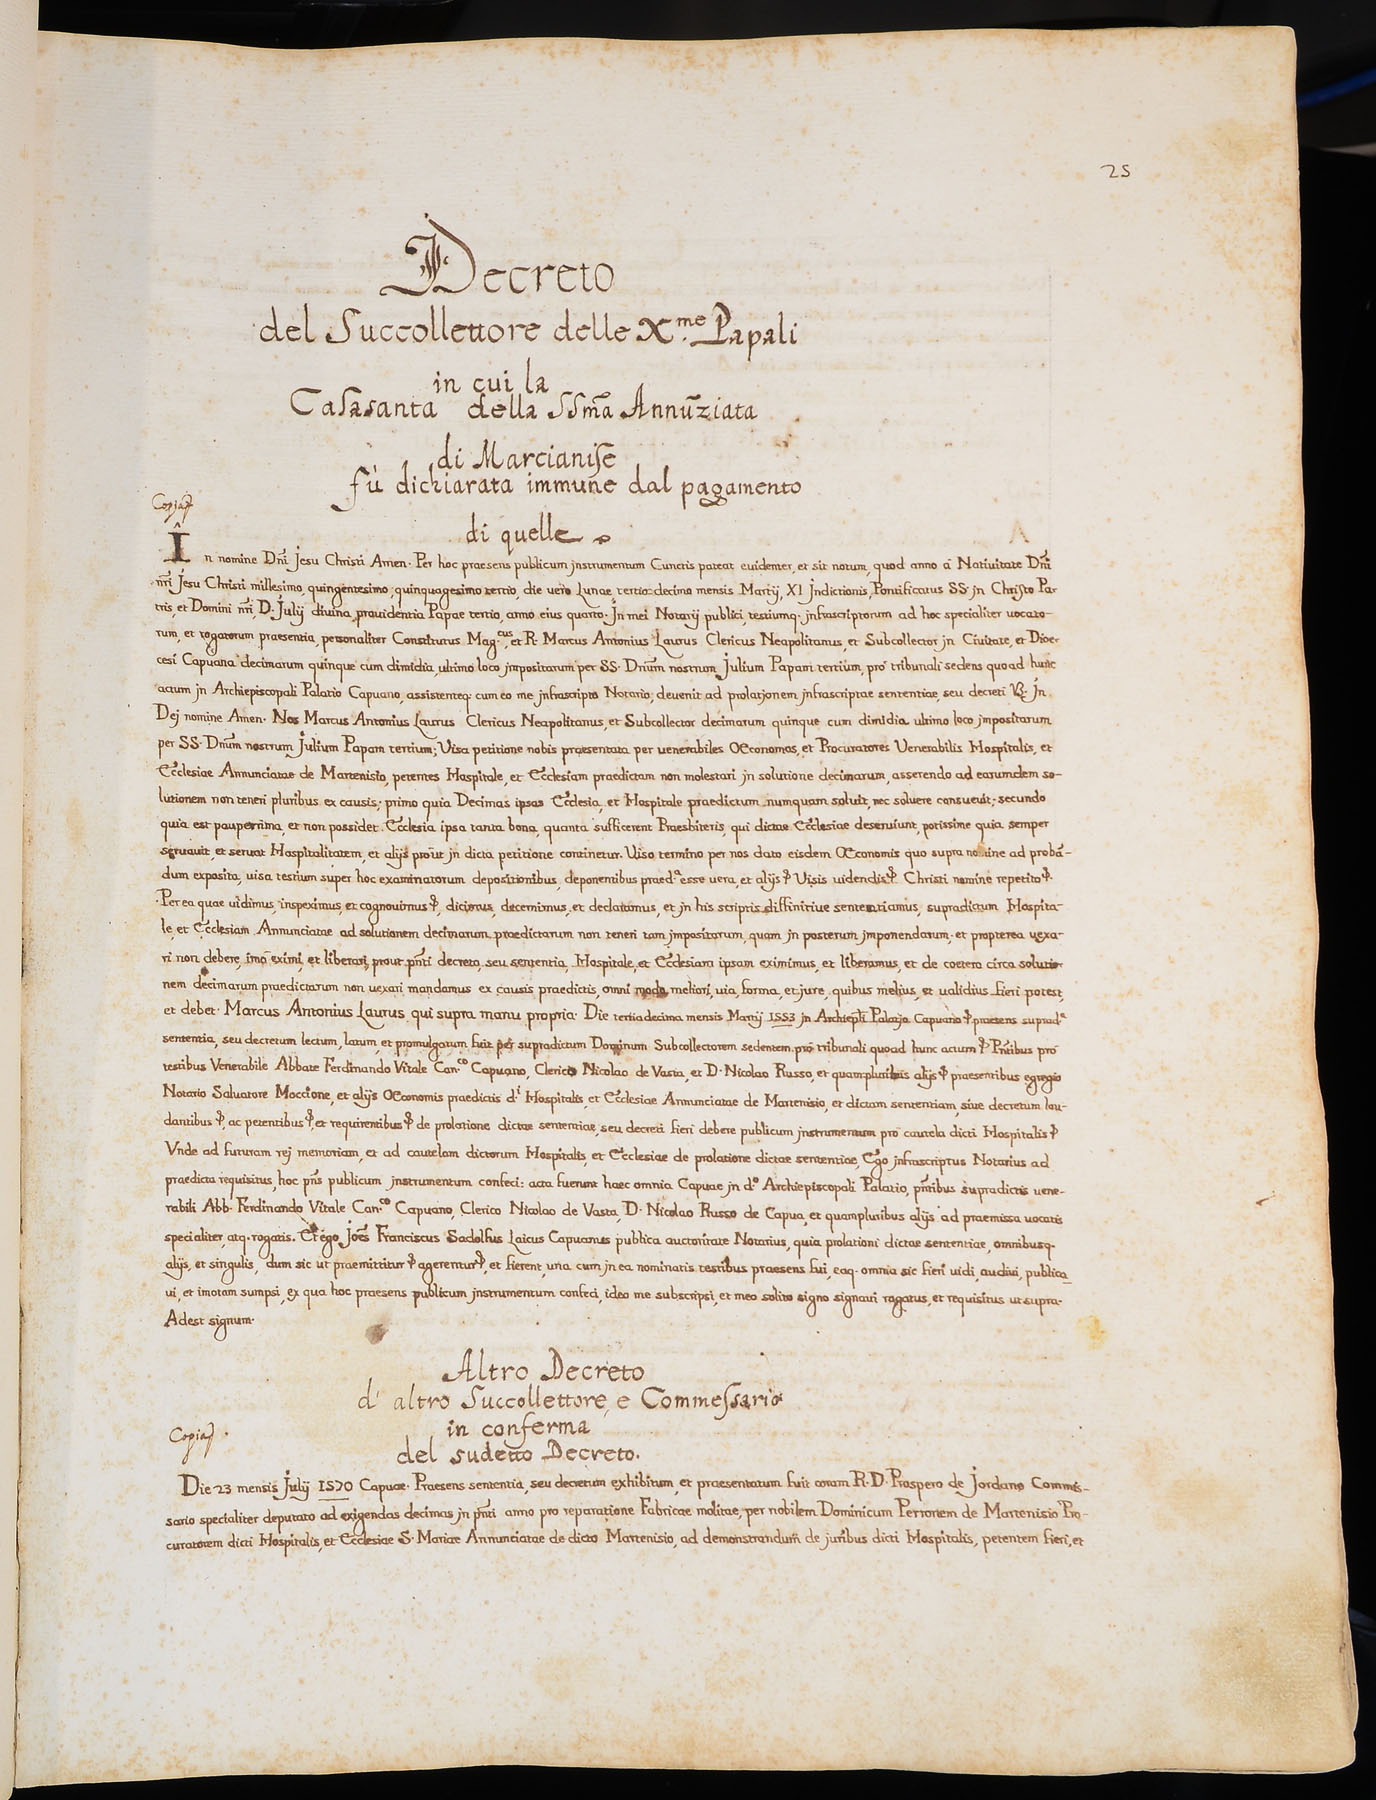 25
Decreto
del Succollettore delle X.me Papali
in cui la
Casasanta della SSma Annuziata
di Marcianise
fù dichiarata immune dal pagamento
Copia
di quelle
In nomine Dni Jesu Christi Amen. Per hoc praesens publicum jnstrumentum Cunctis pateat euidenter, et sit notum, quod anno a Natiuitate Dni
nri Jesu Christi millesimo, quingentesimo, quinquagesimo tertio, die uero Lunae tertio decimo mensis Martij, XI Jndictionis, Pontificatus SS. jn Christo Pa-
tris, et Domini nri, D. Julij diuina prouidentia Papae tertio, anno eius quarto. Jn mei Notarij publici, testiumq. jnfrascriptorum ad hoc specialiter uocato-
rum, et rogatorum praesentia, personaliter Constitutus Mag.cus, et R. Marcus Antonius Laurus Clericus Neapolitanus, et Subcollector jn Ciuitate, et Dioe-
cesi Capuana decimarum quinque cum dimidia, ultimo loco jmpositarum per SS. Dnum nostrum Julium Papam tertium, pro tribunali sedens quoad hunc
actum jn Archiepiscopali Palatio Capuano, assistenteq. cum eo me jnfrascripto Notario, deuenit ad prolatjonem jnfrascriptae sententiae, seu decreti Jn
Dej nomine Amen. Nos Marcus Antonius Laurus Clericus Neapolitanus, et Subcollector decimarum quinque cum dimidia ultimo loco jmpositarum
per SS. Dnum nostrum Julium Papam tertium; Visa petitione nobis praesentata per uenerabiles Oeconomos, et Procuratores Venerabilis Hospitalis, et
Ecclesiae Annunciatae de Martenisio, petentes Hospitale, et Ecclesiam praedictam non molestari jn solutione decimarum, asserendo ad earumdem so-
lutionem non teneri pluribus ex causis; primo quia Decimas ipsas Ecclesia, et Hospitale praedictum numquam soluit, nec soluere consueuit; secundo
quia est pauperrima, et non possidet Ecclesia ipsa tanta bona, quanta sufficerent Praesbiteris, qui dictae Ecclesiae deseruiunt, potissime quia semper
seruauit, et seruat Hospitalitatem, et alijs prout jn dicta petitione continetur. Viso termino per nos dato eisdem Oeconomis quo supra nomine ad proba-
dum exposita, uisa testium super hoc examinatorum depositionibus, deponentibus praed.a esse uera, et alijs Visis uidendis Christi nomine repetito
Per ea quae uidimus, inspeximus, et cognouimus dicimus, decernimus, et declaramus, et jn his scriptis diffinitiue sententiamus, supradictum Hospita-
le, et Ecclesiam Annunciatae ad solutionem decimarum praedictarum non teneri tam jmpositarum, quam jn posterum jmponendarum, et propterea uexa-
ri non debere, imo eximi, et liberari, prout pnti decreto, seu sententia, Hospitale, et Ecclesiam ipsam eximimus, et liberamus, et de coetera circa solutio-
nem decimarum praedictarum non uexari mandamus ex causis praedictis, omni modo, meliori, uia, forma, et jure, quibus melius, et ualidius fieri potest,
et debet. Marcus Antonius Laurus qui supra manu propria. Die tertiadecima mensis Martij 1553 jn Archiepli Palatjo Capuano praesens suprad.a
sententia, seu decretum lectum, latum, et promulgatum fuit per supradictum Dominum Subcollectorem sedentem pro tribunali quoad hunc actum Pntibus pro
testibus Venerabile Abbate Ferdinando Vitale Can.co Capuano, Clerico Nicolao de Vasta, et D. Nicolao Russo, et quampluribus alijs praesentibus egregio
Notario Saluatore Moccione, et alijs Oeconomis praedictis d.i Hospitalis, et Ecclesiae Annunciatae de Martenisio, et dictam sententiam, siue decretum lau-
dantibus, ac petentibus, et requirentibus de prolatione dictae sententiae, seu decreti fieri debere publicum jnstrumentum pro cautela dicti Hospitalis
Vnde ad futuram rej memoriam, et ad cautelam dictorum Hospitalis, et Ecclesiae de prolatione dictae sententiae, Ego jnfrascriptus Notarius ad
praedicta requisitus, hoc pns publicum jnstrumentum confeci: acta fuerunt haec omnia Capuae jn d.o Archiepiscopali Palatio, pntibus supradictis uene-
rabili Abb. Ferdinando Vitale Can.co Capuano, Clerico Nicolao de Vasta, D. Nicolao Russo de Capua, et quampluribus alijs ad praemissa uocatis
specialiter, atq. rogatis. Et ego Joes Franciscus Sadolfus Laicus Capuanus publica auctoritate Notarius, quia prolationi dictae sententiae, omnibusq.
alijs, et singulis, dum sic ut praemittitur agerentur, et fierent, una cum jn ea nominatis testibus praesens fui, eaq. omnia sic fieri uidi, audiui, publica
ui, et in notam sumpsi, ex qua hoc praesens publicum jnstrumentum confeci, ideo me subscripsi, et meo solito signo signaui rogatus, et requisitus ut supra.
Adest signum.
Altro Decreto
d' altro Succollettore, e Commessario
in conferma
Copia
del sudetto Decreto.
Die 23 mensis Julij 1570 Capuae. Praesens sententia, seu decretum exhibitum, et praesentatum fuit coram R. D. Prospero de Jordano Commis-
sario specialiter deputato ad exigendas decimas jn pnti anno pro reparatione Fabricae molitae, per nobilem Dominicum Perronem de Martenisio Pro-
curatorem dicti Hospitalis, et Ecclesiae S. Mariae Annunciatae de dicto Martenisio, ad demonstrandum de juribus dicti Hospitalis, petentem fieri, et